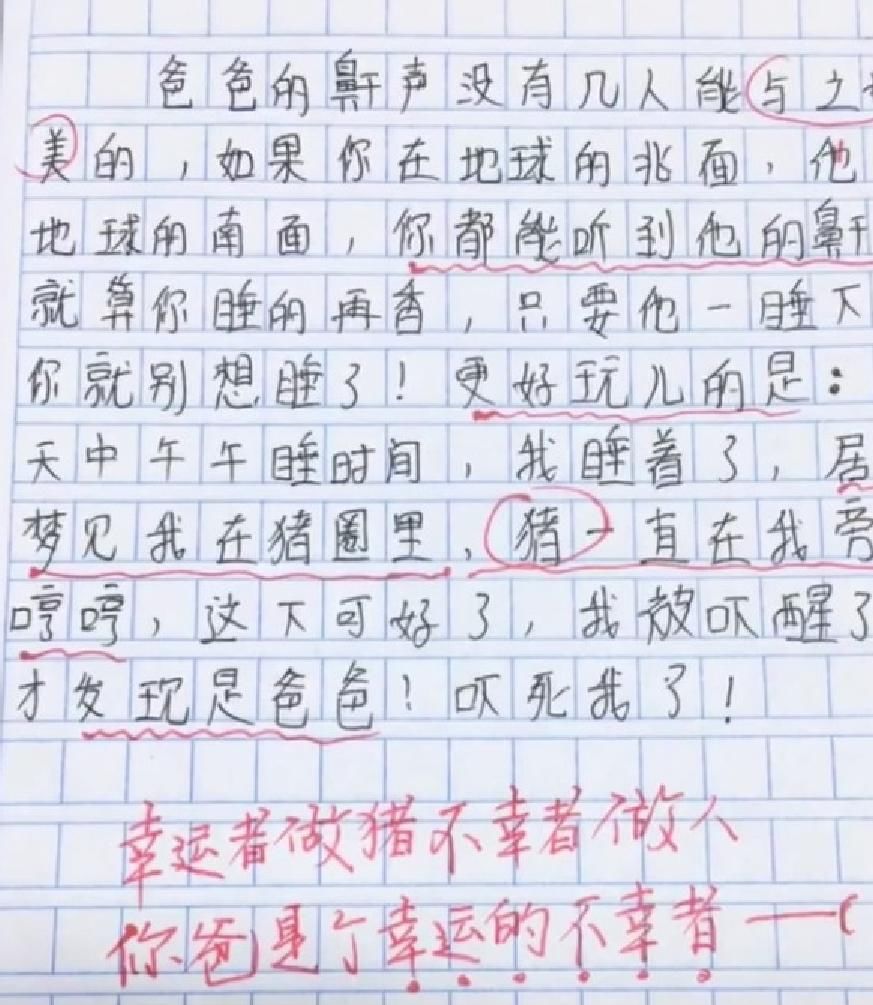 爸爸的鼾声没有几人能与之
美的，如果你在地球的兆面，他
地球的南面，你都能听到他的鼾
就算你睡的再香，只要他一睡下
你就别想睡了！更好玩儿的是：
天中午午睡时间，我睡着了，居
梦见我在猪圈里，猪一直在我旁
哼哼，这下可好了，我被吓醒了
才发现是爸爸！吓死我了！
幸运者做猪不幸者做人
你爸是个幸运的不幸者——